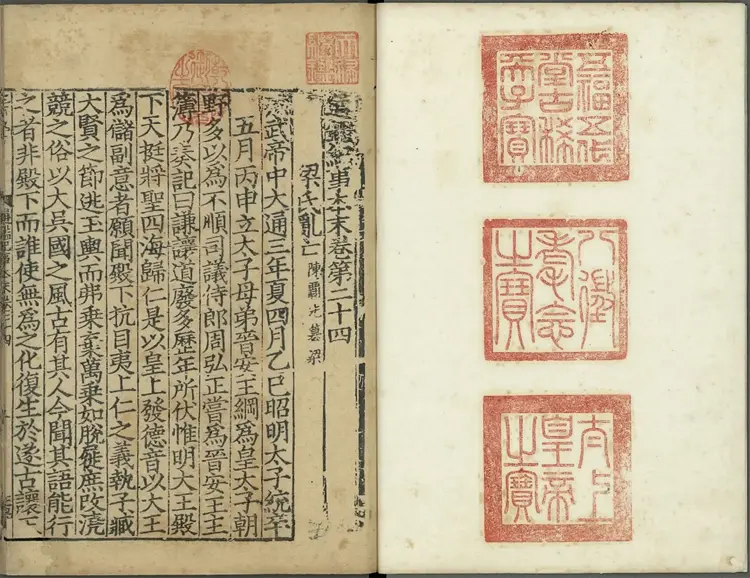 五福五代
堂古稀
天子寶
八徵
耄念
之寶
太上
皇帝
之寶
通鑑紀事本末卷第二十四
梁氏亂亡 陳霸先篡梁
武帝中大通三年夏四月乙巳昭明太子統卒
五月丙申立太子母弟晉安王綱為皇太子朝
野多以為不順司議侍郎周弘正嘗為晉安王主
簿乃奏記曰謙讓道廢多歷年所伏惟明大王殿
下天挺將聖四海歸仁是以皇上發德音以大王
為儲副意者願聞殿下抗目夷上仁之義執子臧
大賢之節逃王輿而弗乘棄萬乘如脫屣庶改澆
競之俗以大吳國之風古有其人今聞其語能行
之者非殿下而誰使無為之化復生於遂古讓王